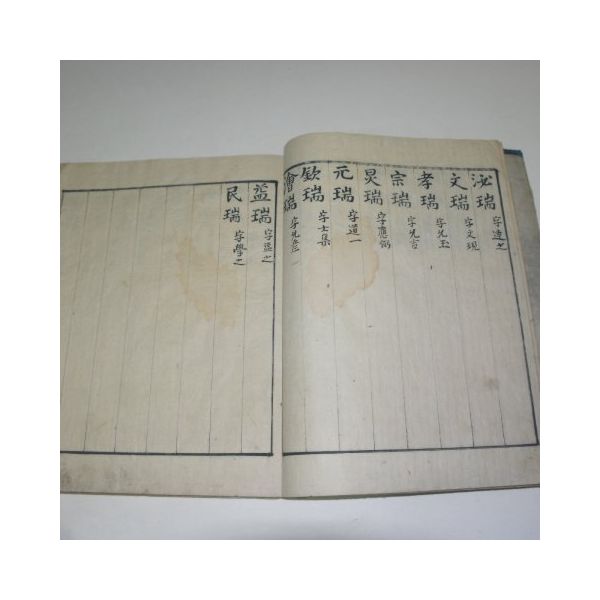 泌瑞 字達之
文瑞 字文現
孝瑞 字允玉
宗瑞 字允吉
炅瑞 字應弼
元瑞 字道一
欽瑞 字士集
會瑞
益瑞 字益之
民瑞 字學之